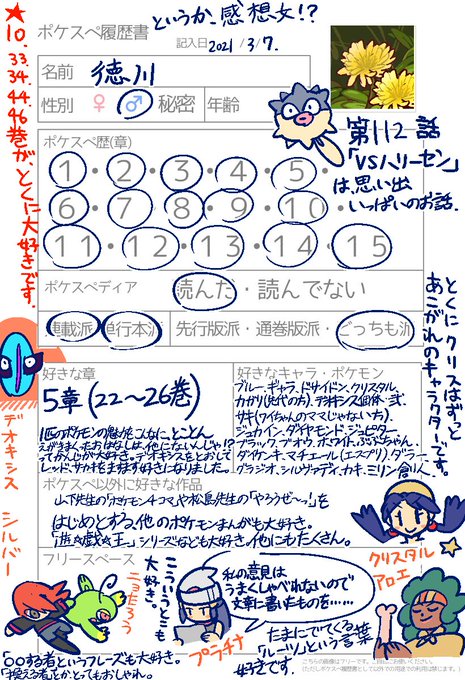 ポケスペ履歴書
というか、感想文!?
記入日 2021/3/7.
名前 徳川
性別 ♀ ♂ 秘密 年齢
★10.33.34.44.46巻が、とくに大好きです。
ポケスペ歴(章)
1・2・3・4・5・
6・7・8・9・10・
11・12・13・14・15
第112話
「VSハリーセン」
は、思い出
いっぱいのお話.
ポケスペディア
読んだ・読んでない
連載派・単行本派
先行版派・通巻版派・どっちも派
とくにクリスはずっと
あこがれのキャラクターです。
好きな章
5章(22〜26巻)
1匹のポケモンの魅力がこんなにとことん
えがきまくるおはなしは、他にないんじゃ!?
っておもいが大好き。デオキシスをとおして
レッド、サカキをますます好きになりました。
好きなキャラ・ポケモン
ブルー、ギャラ、ドサイドン、クリスタル、
カガリ(先代の方)、デオキシス個体・弐、
サキ(ワイちゃんのママじゃない方)、
ジュカイン、ダイヤモンド、ジュピター
ブラック、ブオウ、ホワイト、ぶぶちゃん、
ダイケンキ、マチエール(エスプリ)、ダラー、
グラジオ、シルヴァディ、カキ、ミリン
ポケスペ以外に好きな作品
山下先生の「ポケモン4コマ」や松島先生の「やろうぜ〜っ!」を
はじめとする、他のポケモンまんがも大好き。
「遊☆戯☆王」シリーズなども大好き。他にもたくさん。
フリースペース
こういうとこも
大好き。
ニョたろう
私の意見は
うまくしゃべれないので
文章に書いたものを……
プラチナ
たまにでてくる
「ルーツ」という言葉
好きです.
クリスタル
アロエ
デオキシス
シルバー
「〇〇する者」というフレーズも大好き。
「換える者」とか、とってもおしゃれ。
こちらの画像はフリーです。ご自由にお使いください。
(ただしポケスペ履歴書として以外での用途での利用は禁じます。)